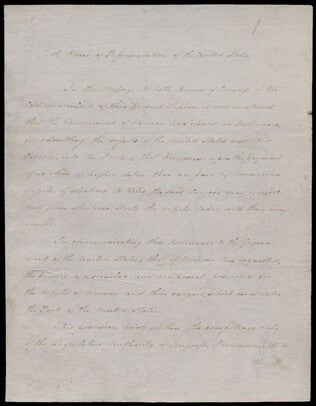 To the House of Representatives of the United States.
In the Message to both Houses of Congress at the
commencement of their present Session, it was mentioned
that the Government of Norway had issued an Ordinance,
for admitting the vessels of the United States and their
Cargoes, into the Ports of that Kingdom, upon the payment
of no other or higher duties, than are paid by Norwegian
vessels, of whatever Articles the said Cargoes may consist
and from whatever Ports the vessels laden with them may
come.
In communicating this Ordinance to the Govern-
ment of the United States, that of Norway has requested,
the benefit of a similar and reciprocal provision for
the vessels of Norway and their cargoes, which may enter
the Ports of the United States.
This provision being within the competency only
of the Legislative Authority of Congress, I communicate to